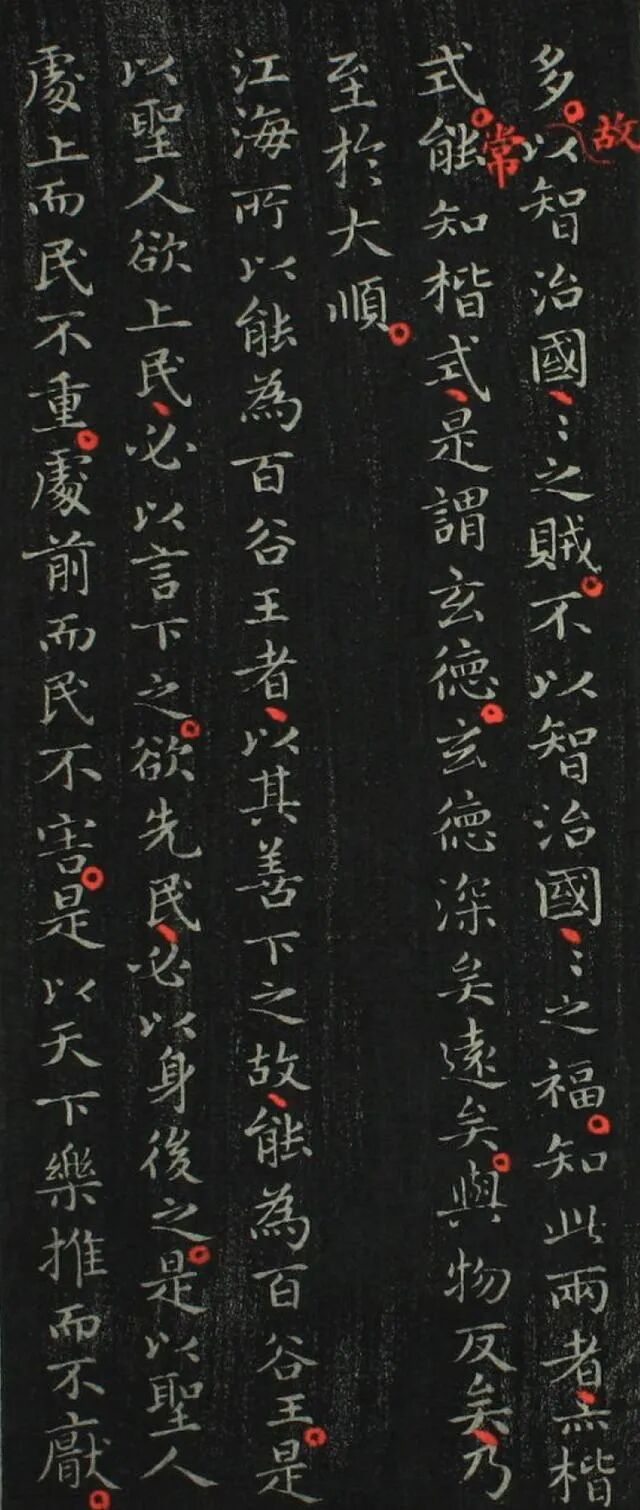 多以智治國〻之賊不以智治國〻之福知此兩者亦楷
故
式能知楷式是謂玄德玄德深矣遠矣與物反矣乃
常
至於大順
江海所以能為百谷王者以其善下之故能為百谷王是
以聖人欲上民必以言下之欲先民必以身後之是以聖人
處上而民不重處前而民不害是以天下樂推而不厭